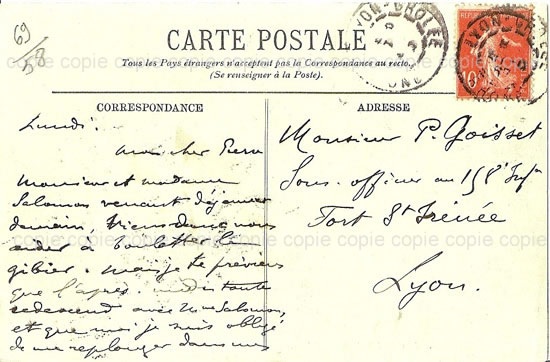 69
58
CARTE POSTALE
Tous les Pays étrangers n'acceptent pas la Correspondance au recto.
(Se renseigner à la Poste).
CORRESPONDANCE
Lundi.
mon cher Pierre
Monsieur et madame
Salomon venant déjeuner
demain. Viens donc nous
aider à boulotter le
gibier. mais je te préviens
que l'après midi toute
redescend avec Mme Salomon,
et que moi je suis obligé
de me replonger dans mes
ADRESSE
Monsieur P. Goisset
Sous-officier au 158e Infie
Fort St Irénée
Lyon.
10
copie copie copie copie copie copie copie copie copie copie